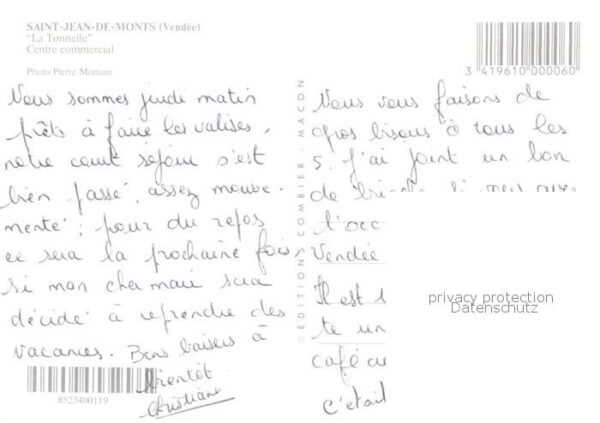 SAINT-JEAN-DE-MONTS (Vendée)
"La Tonnelle"
Centre commercial
Photo Pierre Monsan
3 419610 000060
Nous sommes jeudi matin
prêts à faire les valises,
notre court séjour s'est
bien passé, assez mouve-
menté ; pour du repos
ce sera la prochaine fois,
si mon cher mari sera
décidé à reprendre des
vacances. Bons baisers à
bientôt
Christiane
8523400119
©EDITIONS COMBIER - MACON
Nous vous faisons de
gros bisous à tous les
5. J'ai joint un bon
de
l'occ
Vendée
Il est
te un
café au
c'était
privacy protection
Datenschutz